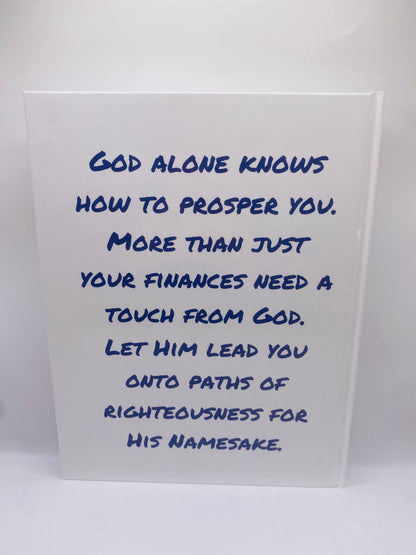 God alone knows
how to prosper you.
More than just
your finances need a
touch from God.
Let Him lead you
onto paths of
righteousness for
His Namesake.